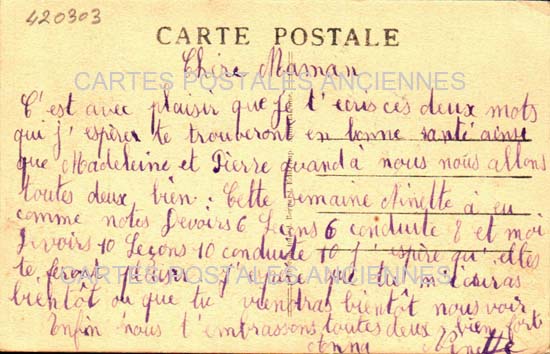 420303
CARTE POSTALE
Chire Maman
CARTES POSTALES ANCIENNES
C'est avec plaisir que je t'ecris ces deux mots
qui j'espère te trouveront en bonne santé ainsi
que Madeleine et Pierre quand à nous nous allons
toutes deux bien. Cette semaine Ninette à eu
comme notes Devoirs 6 Leçons 6 conduite 8 et moi
Devoirs 10 Leçons 10 conduite 10 j'espère qu'elles
te feront plaisir j'espère que tu m'ecriras
CARTES POSTALES ANCIENNES
bientôt ou que tu viendras bientôt nous voir
Enfin nous t'embrassons toutes deux bien fort
Anna Ninette